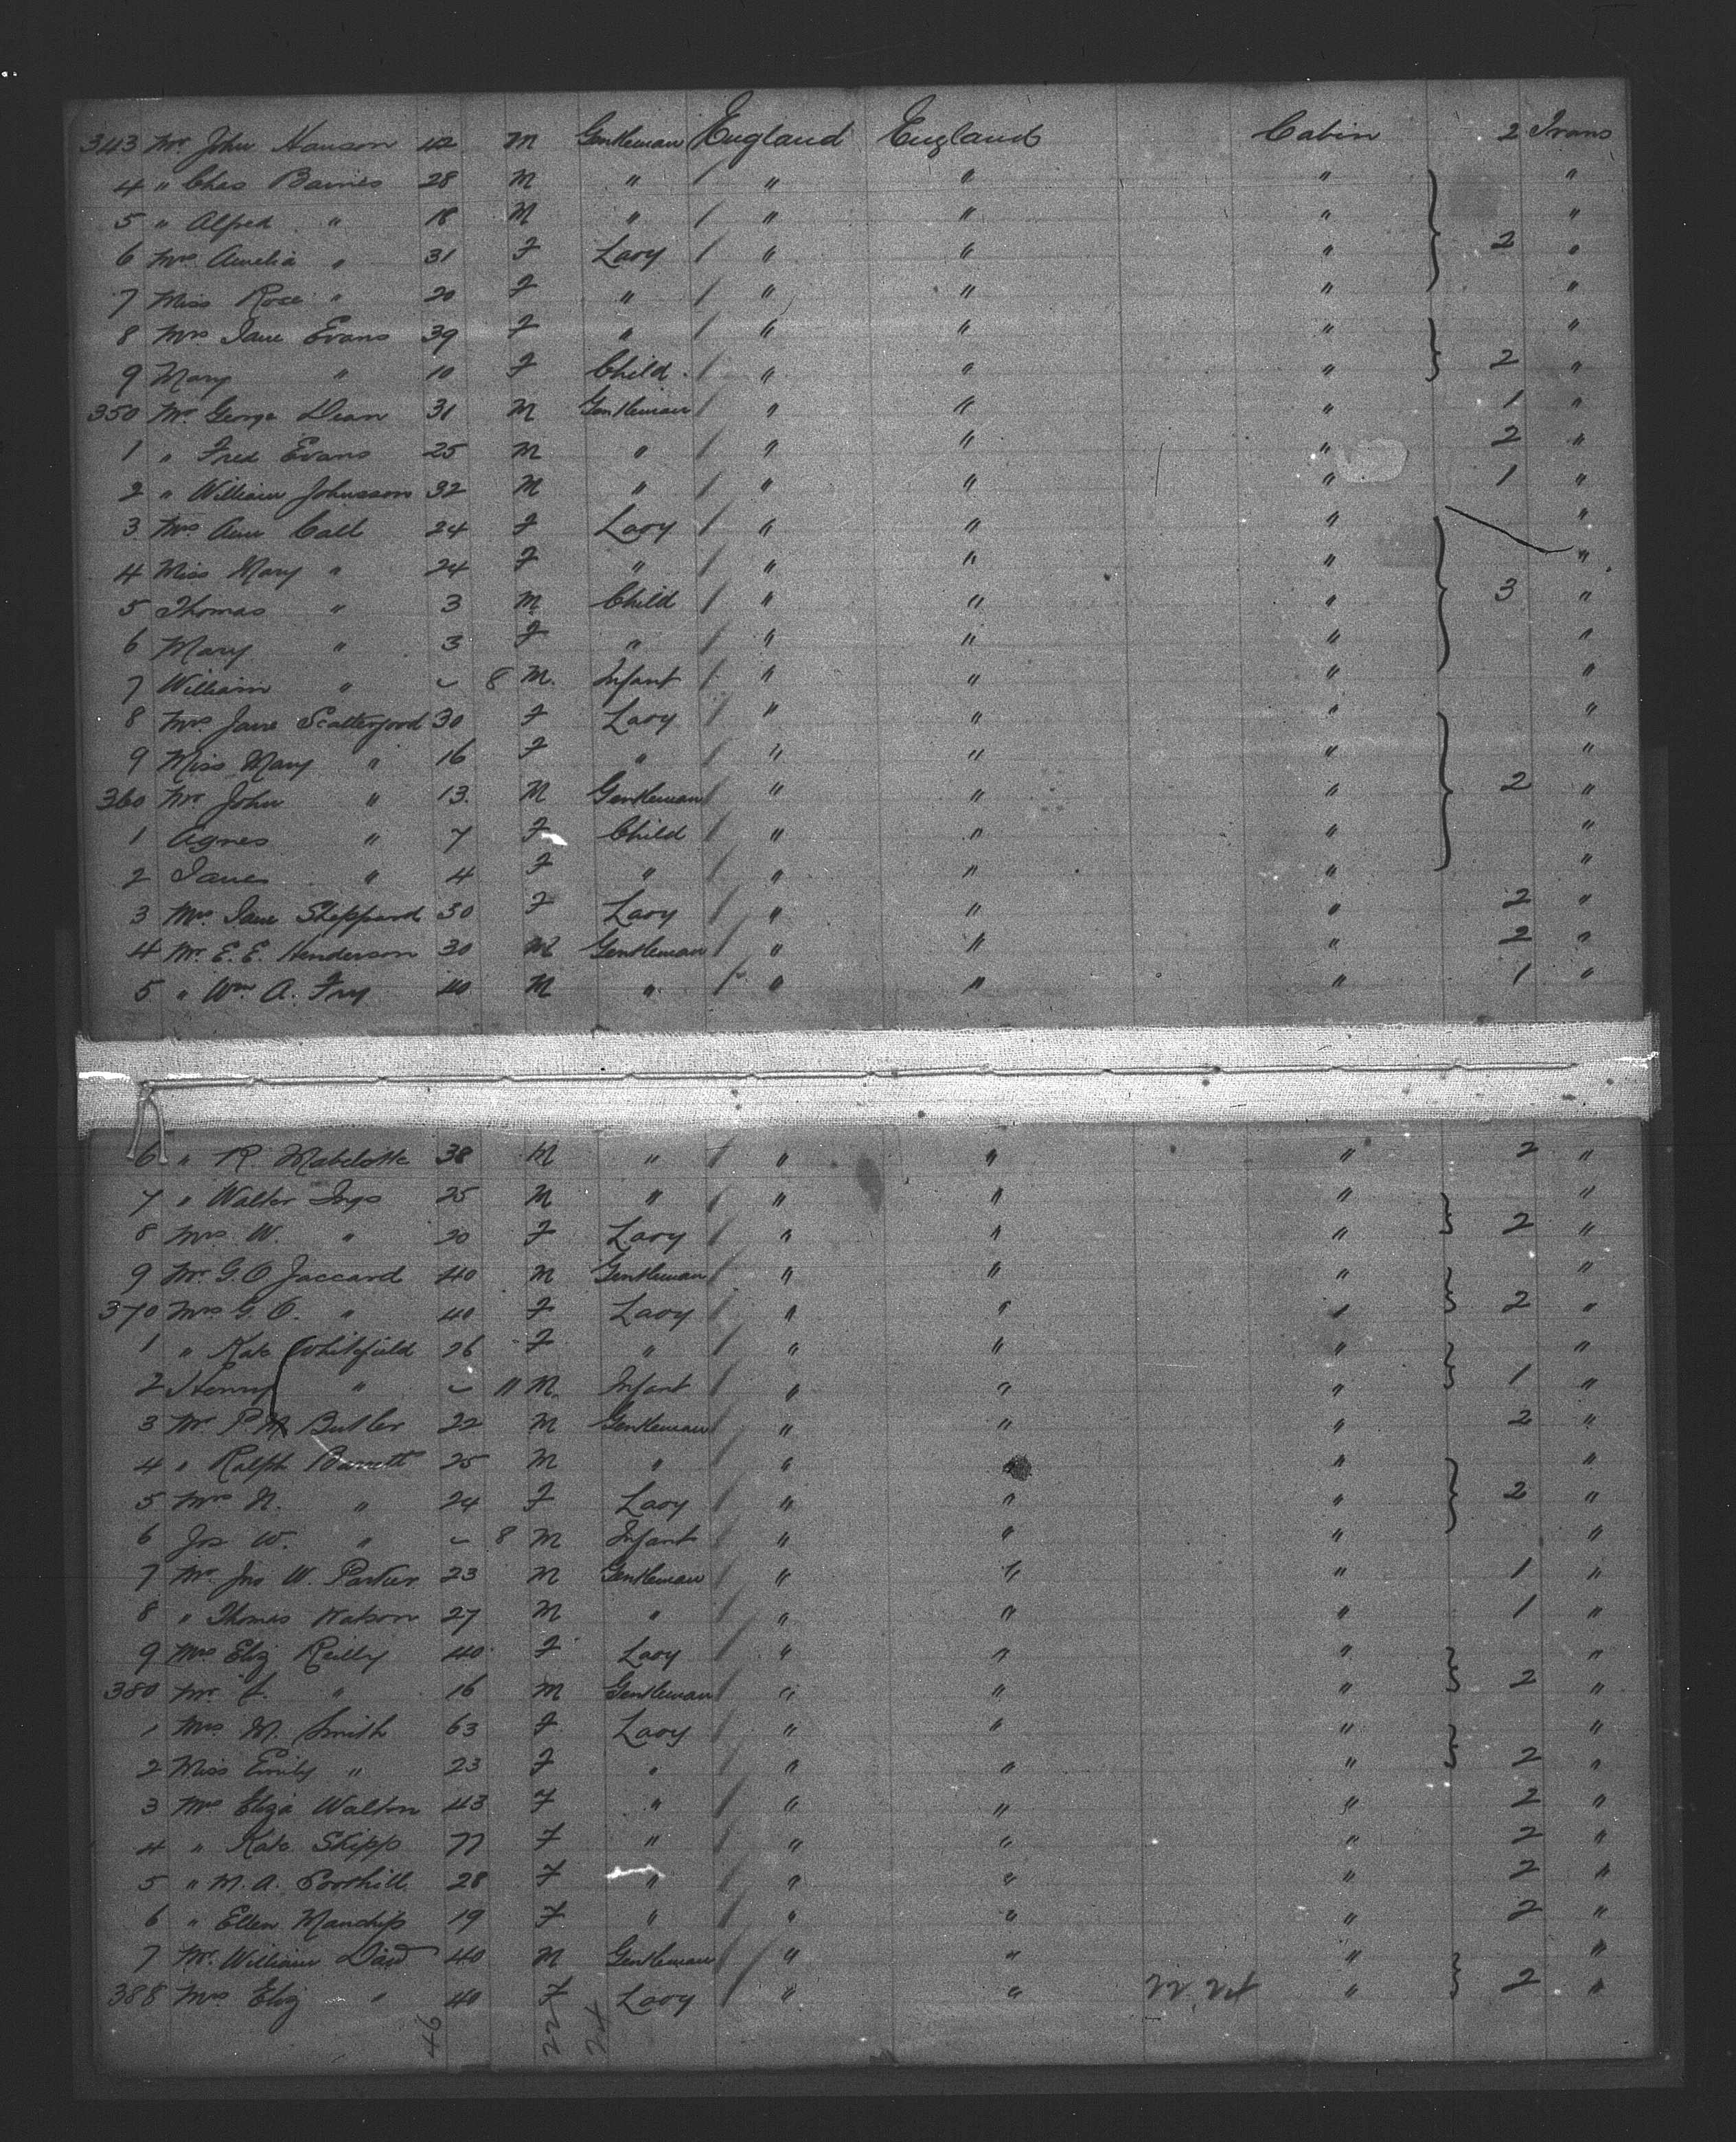 343 Mr John Hanson 42 M Gentleman England England Cabin 2 Trans
4 " Chas Barnes 28 M " / " " " "
5 " Alfred " 18 M " / " " " "
6 Mrs Amelia " 31 F Lady / " " " 2 "
7 Miss Rose " 20 F " / " " " "
8 Mrs Jane Evans 39 F " / " " " "
9 Mary " 10 F Child / " " " 2 "
350 Mr George Dean 31 M Gentleman / " " " 1 "
1 " Fred Evans 25 M " / " " " 2 "
2 " William Johnsson 32 M " / " " " 1 "
3 Mrs Ann Call 24 F Lady / " " " "
4 Miss Mary " 24 F " / " " " "
5 Thomas " 3 M Child / " " " 3 "
6 Mary " 3 F " / " " " "
7 William " ~ 8 M. Infant / " " " "
8 Mrs Jane Scattergood 30 F Lady / " " " "
9 Miss Mary " 16 F " / " " " "
360 Mr John " 13 M Gentleman / " " " 2 "
1 Agnes " 7 F Child / " " " "
2 Janes " 4 F " / " " " "
3 Mrs Jane Sheppard 30 F Lady / " " " 2 "
4 Mr. E. E. Henderson 30 M Gentleman / " " " 2 "
5 " Wm A. Fry 40 M " / " " " 1 "
6 " R. 38 M " / " " " 2 "
7 " Walter Ings 25 M " / " " " "
8 Mrs W. " 20 F Lady / " " " 2 "
9 Mr. G. O Jaccard 40 M Gentleman / " " " "
370 Mrs G. O. " 40 F Lady / " " " 2 "
1 " Kate Whitefield 26 F " / " " " "
2 Henry " ~ 11 M. Infant / " " " 1 "
3 Mr P. Butler 22 M Gentleman / " " " 2 "
4 " Ralph Barrett 25 M " / " " " "
5 Mrs N. " 24 F Lady / " " " 2 "
6 Jos W. " ~ 8 M Infant / " " " "
7 Mr. Jno W. Parker 23 M Gentleman / " " " 1 "
8 " Thomas Watson 27 M " / " " " 1 "
9 Mrs Eliz Reilly 40 F Lady / " " " "
380 Mr " 16 M Gentleman / " " " 2 "
1 Mrs M. Smith 63 F Lady / " " " "
2 Miss Emily " 23 F " / " " " 2 "
3 Mrs Eliza Walton 43 F " / " " " 2 "
4 " Kate Shipp 77 F " / " " " 2 "
5 " M. A. 28 F " / " " " 2 "
6 " Ellen Manship 19 F " / " " " 2 "
7 Mr. William 40 M Gentleman / " " " "
388 Mrs Eliz " 40 F Lady / " " 22.24 " 2 "
46 22 24